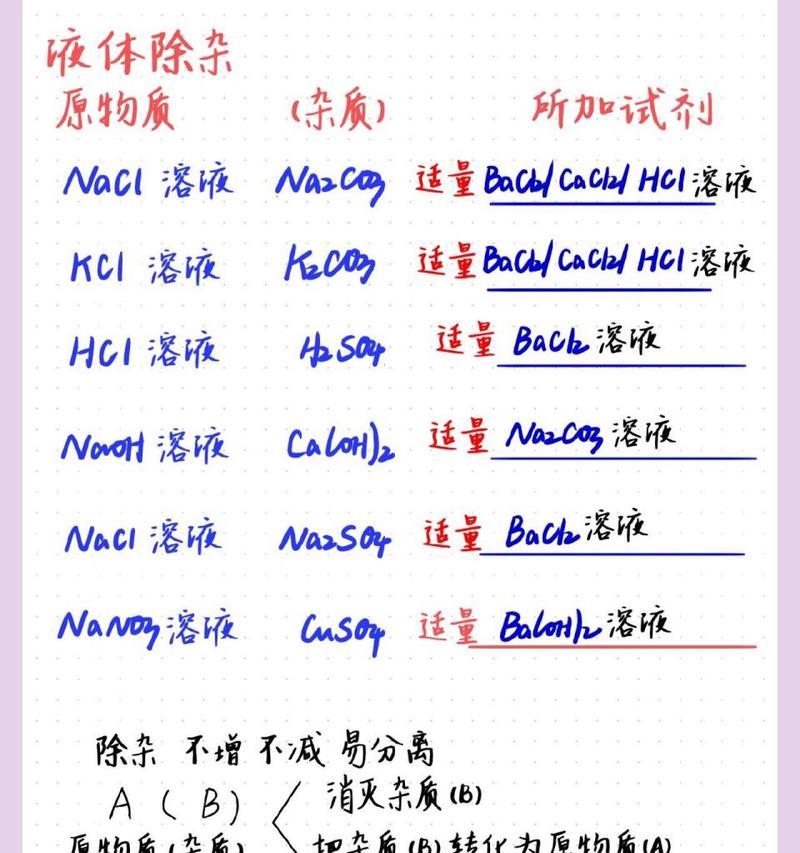 液体除杂
原物质 (杂质) 所加试剂
NaCl 溶液 Na2CO3 适量 BaCl2/CaCl2/HCl 溶液
KCl 溶液 K2CO3 适量 BaCl2/CaCl2/HCl 溶液
HCl 溶液 H2SO4 适量 BaCl2 溶液
NaOH 溶液 Ca(OH)2 适量 Na2CO3 溶液
NaCl 溶液 Na2SO4 适量 BaCl2 溶液
NaNO3 溶液 CuSO4 适量 Ba(OH)2 溶液
除杂 不增 不减 易分离
A ( B ) 消灭杂质(B)
原物质(杂质) 把杂质(B)转化为原物质(A)